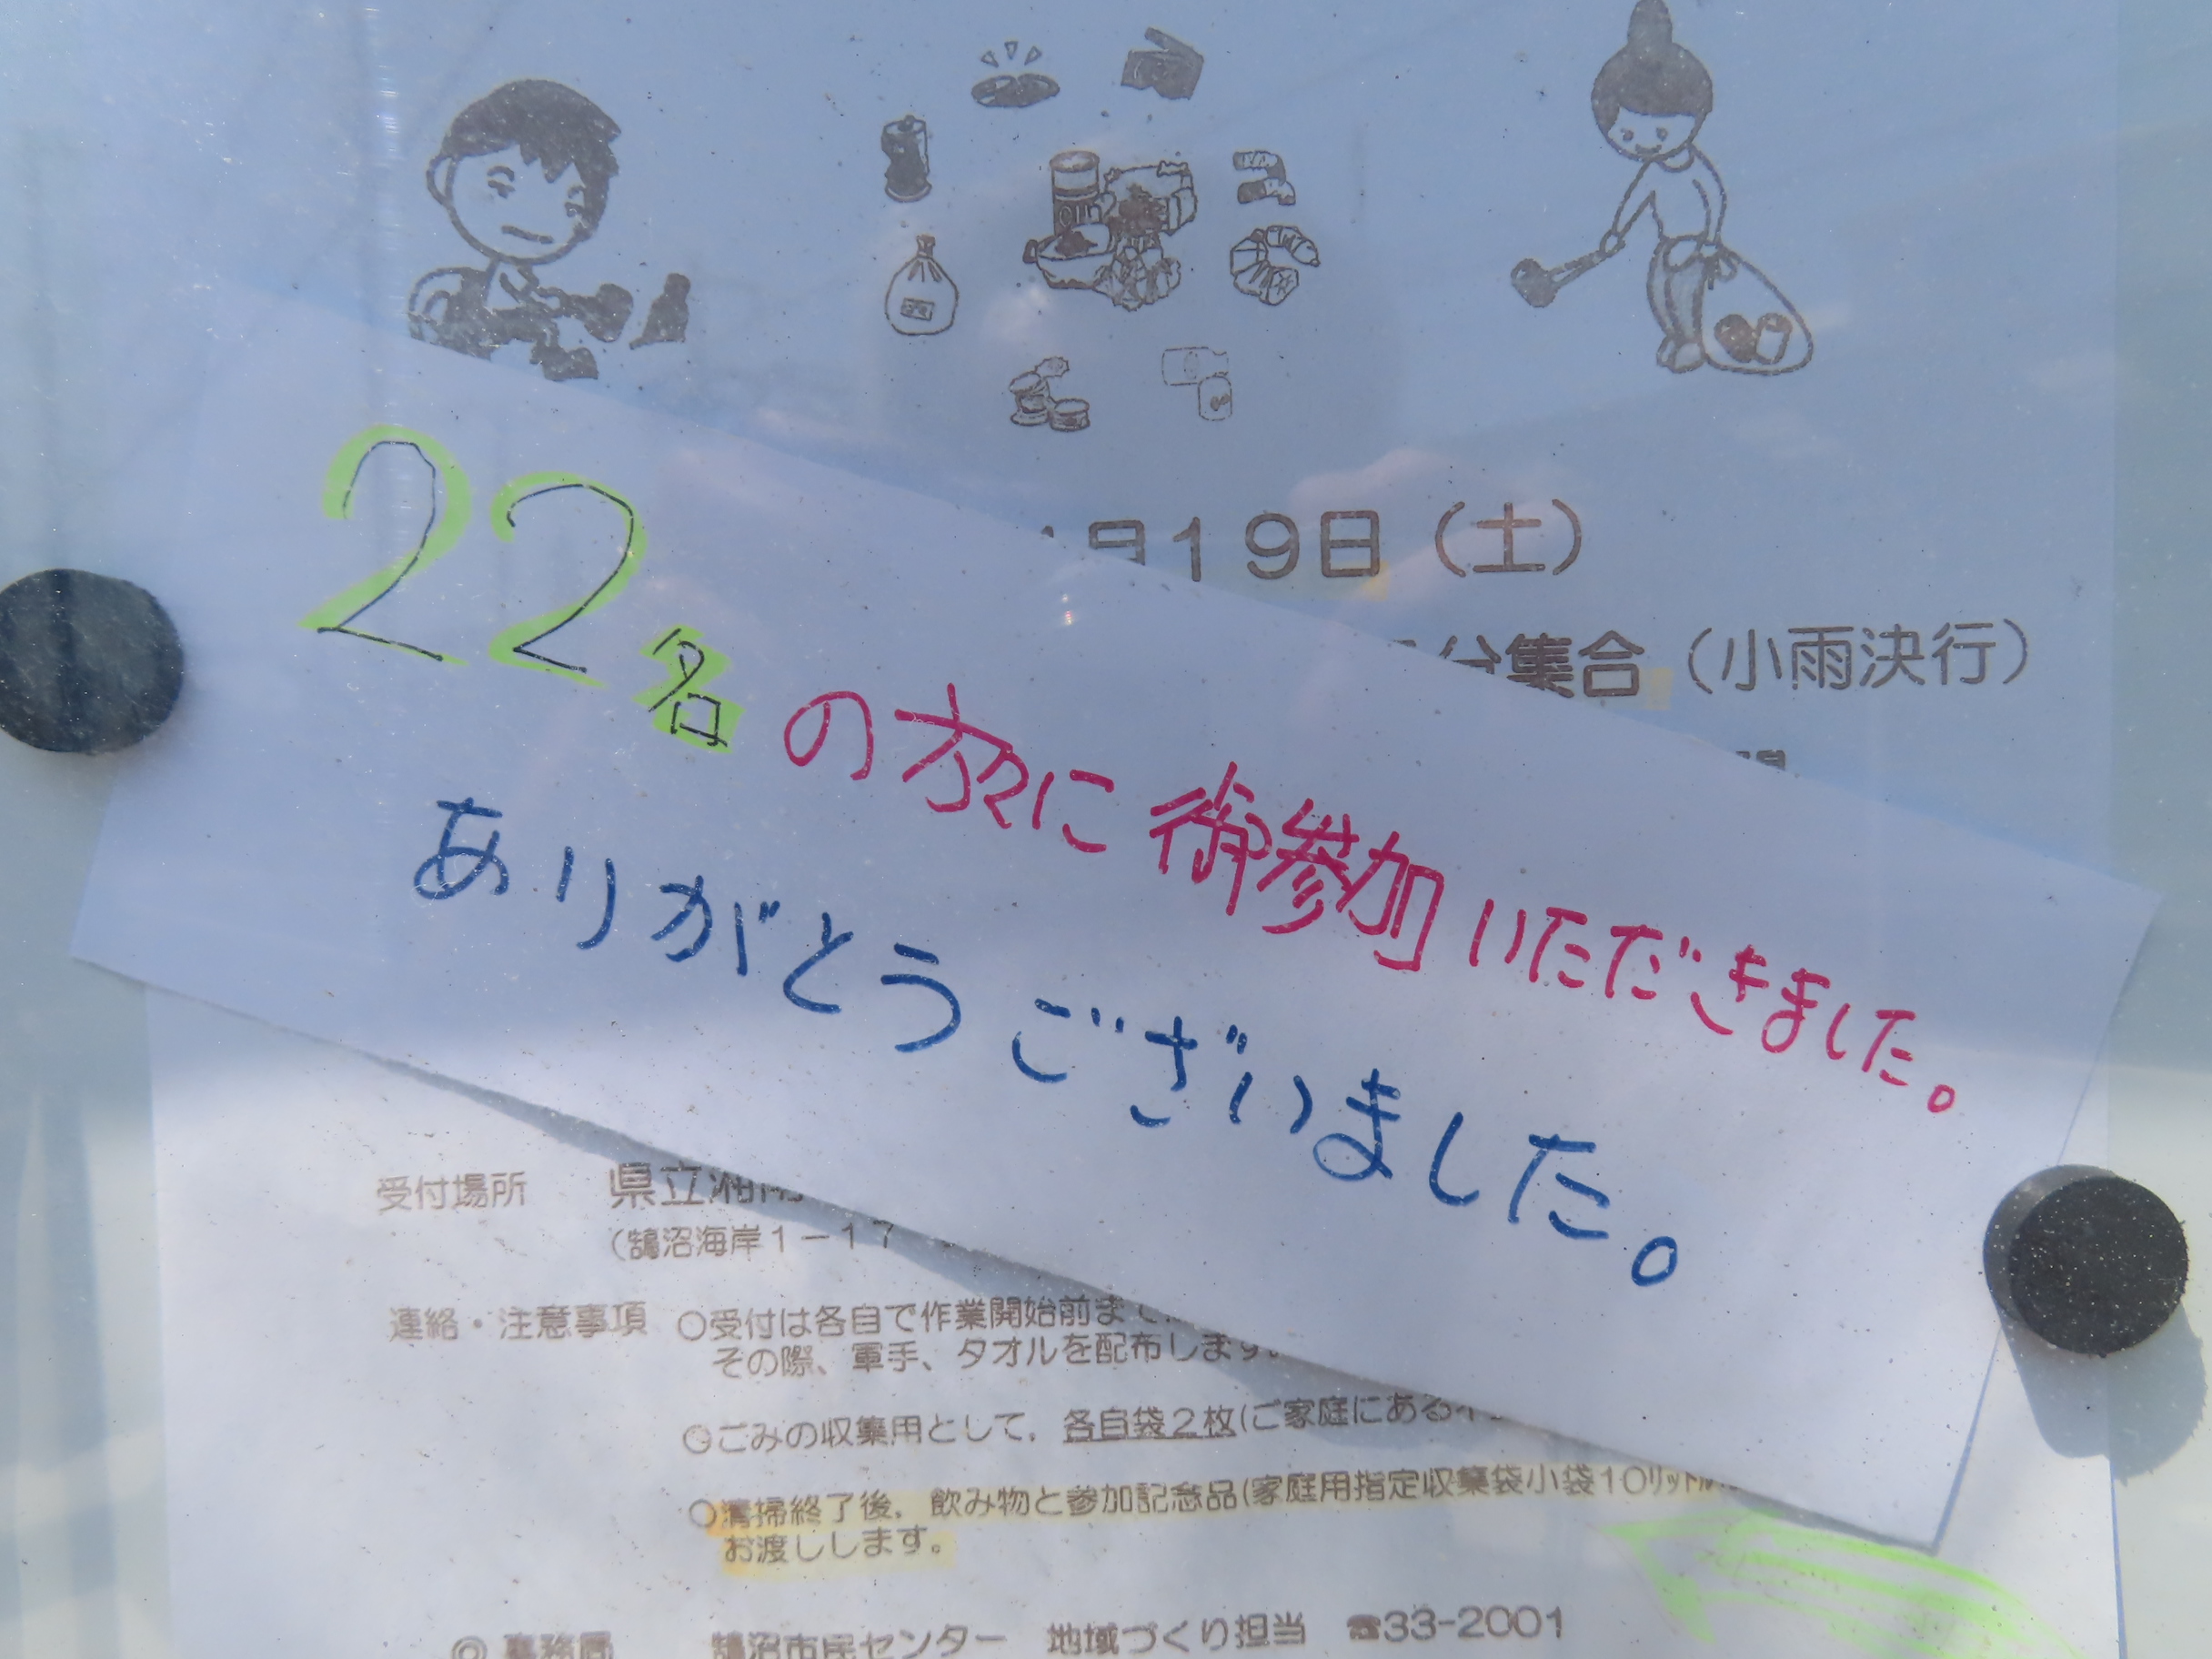 月19日（土）
分集合（小雨決行）
22名の方々に御参加いただきました。
ありがとうございました。
受付場所 県立湘南
（鵠沼海岸1－17
連絡・注意事項 ○受付は各自で作業開始前まで
その際、軍手、タオルを配布します。
○ごみの収集用として，各自袋2枚(ご家庭にある
○清掃終了後，飲み物と参加記念品(家庭用指定収集袋小袋10リットル
お渡しします。
◎ 事務局 鵠沼市民センター 地域づくり担当 ☎33-2001